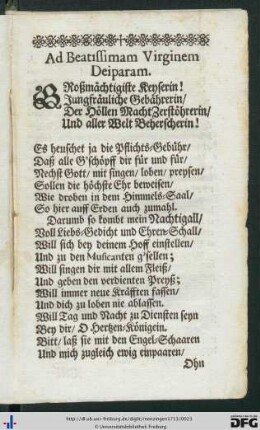 Ad Beatissimam Virginem
Deiparam.
GRoßmächtigiste Keyserin!
Jungfräuliche Gebährerin/
Der Höllen Macht Zerstöhrerin/
Und aller Welt Beherscherin!
Es heuschet ja die Pflichts-Gebühr/
Daß alle G'schöpff dir für und für/
Nechst Gott/ mit singen/ loben/ preysen/
Sollen die höchste Ehr beweisen/
Wie droben in dem Himmels-Saal/
So hier auff Erden auch zumahl.
Darumb so kombt mein Nachtigall/
Voll Liebs-Gedicht und Ehren-Schall/
Will sich bey deinem Hoff einstellen/
Und zu den Musicanten g'sellen;
Will singen dir mit allem Fleiß/
Und geben den verdienten Preyß;
Will immer neue Kräfften fassen/
Und dich zu loben nie ablassen.
Will Tag und Nacht zu Diensten seyn
Bey dir/ O Hertzen-Königein.
Bitt/ laß sie mit den Engel-Schaaren
Und mich zugleich ewig einpaaren/
Ohn
http://dl.ub.uni-freiburg.de/diglit/renninger1712/0023
© Universitätsbibliothek Freiburg
DFG